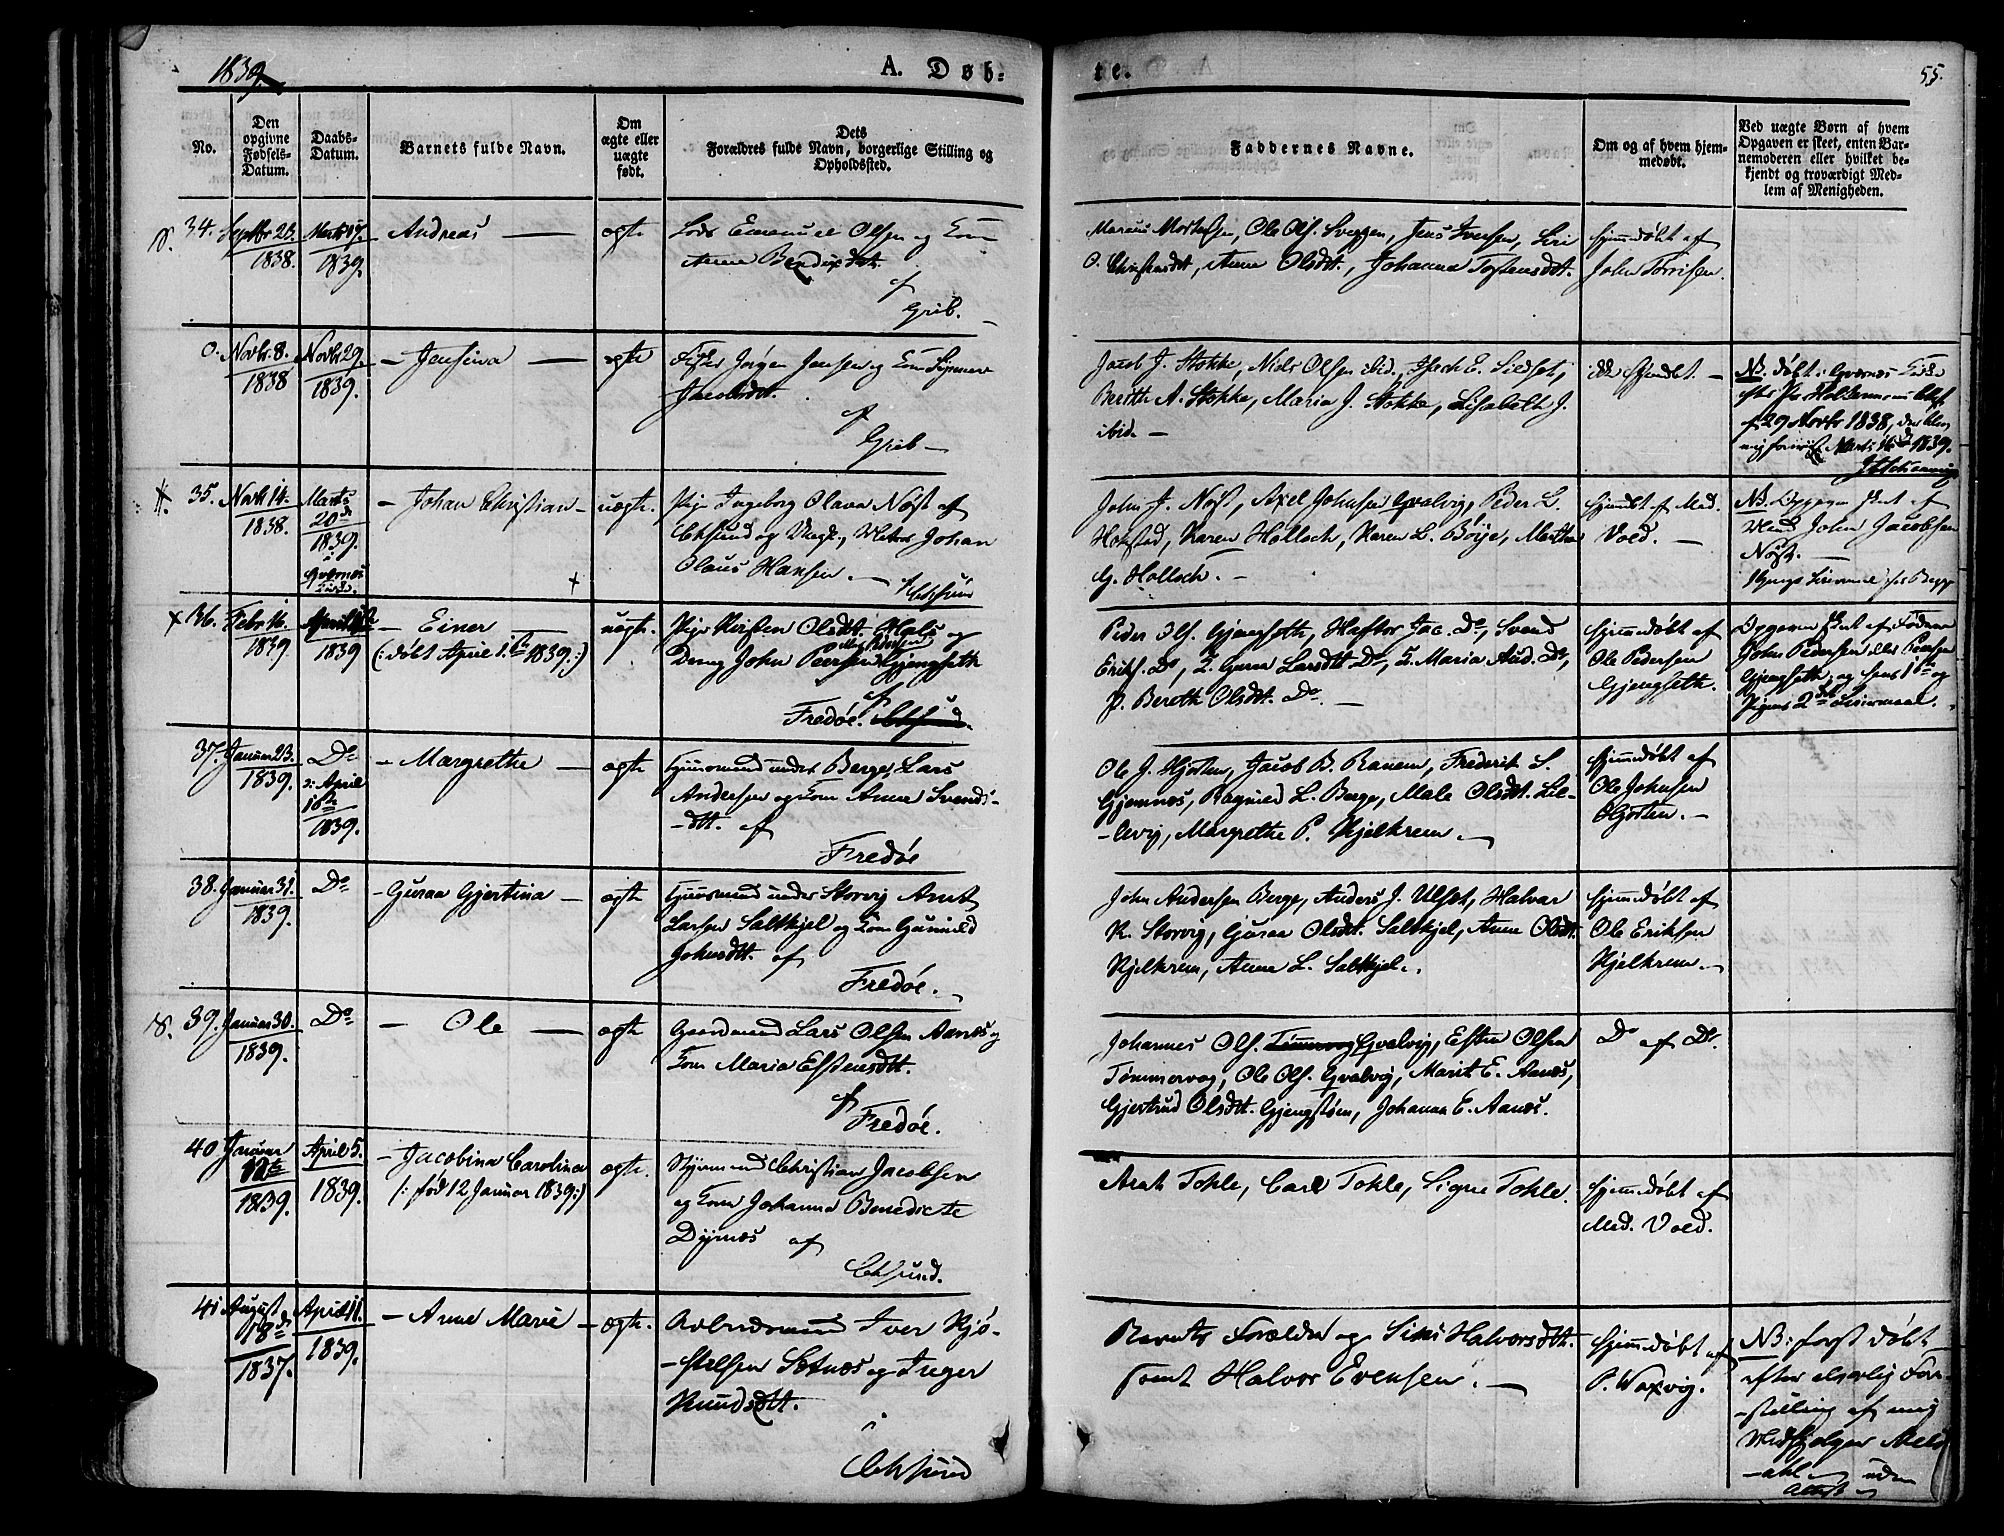 1839.
A. Døb-
te.
55.
No.
Den
opgivne
Fødsels-
Datum.
Daabs-
Datum.
Barnets fulde Navn.
Om
ægte eller
uægte
født.
Dets
Forældres fulde Navn, borgerlige Stilling og
Opholdssted.
Faddernes Navne.
Om og af hvem hjem-
medøbt.
Ved uægte Børn af hvem
Opgaven er skeet, enten Bar-
nemoderen eller hvilket be-
kjendt og troværdigt Med-
lem af Menigheden.
34. Septbr 23.
1838.
Marts 17.
1839.
Andreas
ægte
Lods Emanuel Olsen og Kone
Anne Bendixdtt.
af
Grib.
Marcus Mortensen, Ole Ols. Sveggen, Jens Iversen, Siri
O. Christensdtt, Anne Olsdtt., Johanna Tostensdtt.
hjemmedøbt af
John Torrisen.
0. Novbr. 8.
1838
Novbr 29.
1839.
Jensina
ægte
Fisker Jørgen Jensen og Kone
Jacobsdtt.
af
Grib
Jacob J. Stokke, Niels Olsen ibid., E. Sildset,
Berith A. Stokke, Maria J. Stokke, Lisabeth J.
ibid.
NB. døbt i Qvernes Kirke
29 Novbr 1838,
Marts 16 1839.
35. Novbr 14.
1838.
Marts
20de
1839.
i
Qvernes
Kirke.
Johan Christian
uægte.
Pige Ingeborg Olava Nøst af
Chrsund og Ungk. Johan
Claus Hansen.
af Chrsund
John J. Nøst, Axel Johnsen Qvalvig, Peder L.
Hokstad, Karen Holloch, Karen L. Böije, Martha
G. Holloch.
hjemmedøbt af Mad.
Vold.
NB. Opgaven skeet af
John Jacobsen
Nøst.
36. Febr 16.
1839.
April 1ste
1839
Einer
(: døbt April 1.ste 1839.:)
uægte.
Pige Kirsten Olsdtt. Hals og
Dreng John Peersen Gjengseth
af
Fredøe. Chrsund.
Peder Ols. Gjengseth, Haftor Jac. Do, Svend
Eriks. Do, L. Guren Larsdtt Do, L. Maria Aud. Do,
P. Bereth Olsdtt. Do.
hjemmedøbt af
Ole Pedersen
Gjengseth.
Opgaven skeet af Faderen
John Pedersen eller Peersen
Gjengseth, og hans 1ste og
Pigens 2det Leiermaal.
37. Januar 23.
1839.
Do
: April
1ste
1839.
Margrethe
ægte
Huusmand under Berge, Lars
Andersen og Kone Anne Svends-
-dtt. af
Fredøe
Ole J. Hjorten, Jacob B. Ranem, Frederik S.
Gjemnæs, Ragnild L. Berge, Male Olsdtt. Lil-
-levig, Margrethe P. Kjelkrem.
hjemmedøbt af
Ole Johnsen
38. Januar 31.
1839.
Do
Guraa Gjertina
ægte
Huusmand under Storvig Arnt
Larsen Saltkjel og Kone Gunnild
Johnsdtt. af
Fredøe.
John Andersen Berge, Anders J. Ulset, Halvar
K. Storvig, Guraa Olsdtt. Saltkjel, Anne Olsdtt.
Kjelkrem, Anne L. Saltkjel.
hjemmedøbt af
Ole Eriksen
Kjelkrem.
39. Januar 30.
1839.
Do
Ole
ægte
Gaardmand Lars Olsen Aanæs og
Kone Maria Estensdtt.
af
Fredøe.
Johannes Ols. Tømmervog Qvalvig, Esten Olsen
Tømmervog, Ole Ols. Qvalvig, Marit E. Aanæs,
Gjertrud Olsdtt. Gjengstøen, Johanna E. Aanæs.
Do af Do.
40 Januar
12te
1839.
April 5.
1839.
Jacobina Carolina
(: fød 12 Januar 1839:)
ægte.
Styrmand Christian Jacobsen
og Kone Johanna Benedicte
Dyrnæs af
Chrsund.
Arnt Tokle, Carl Tokle, Signe Tokle.
hjemmedøbt af
Mad. Vold.
41 August
18de
1837.
April 11.
1839.
Anne Marie
ægte.
Arbeidsmand Iver Kjø-
-stelsen Sætnæs og Inger
Knudsdtt.
Chrsund
Barnets Forældre og Siri Halvorsdtt.
samt Halvor Evensen.
hjemmedøbt af
P. Waxvig.
NB: først døbt
efter alvorlig Fore-
-stilling af mig
uden
Attest